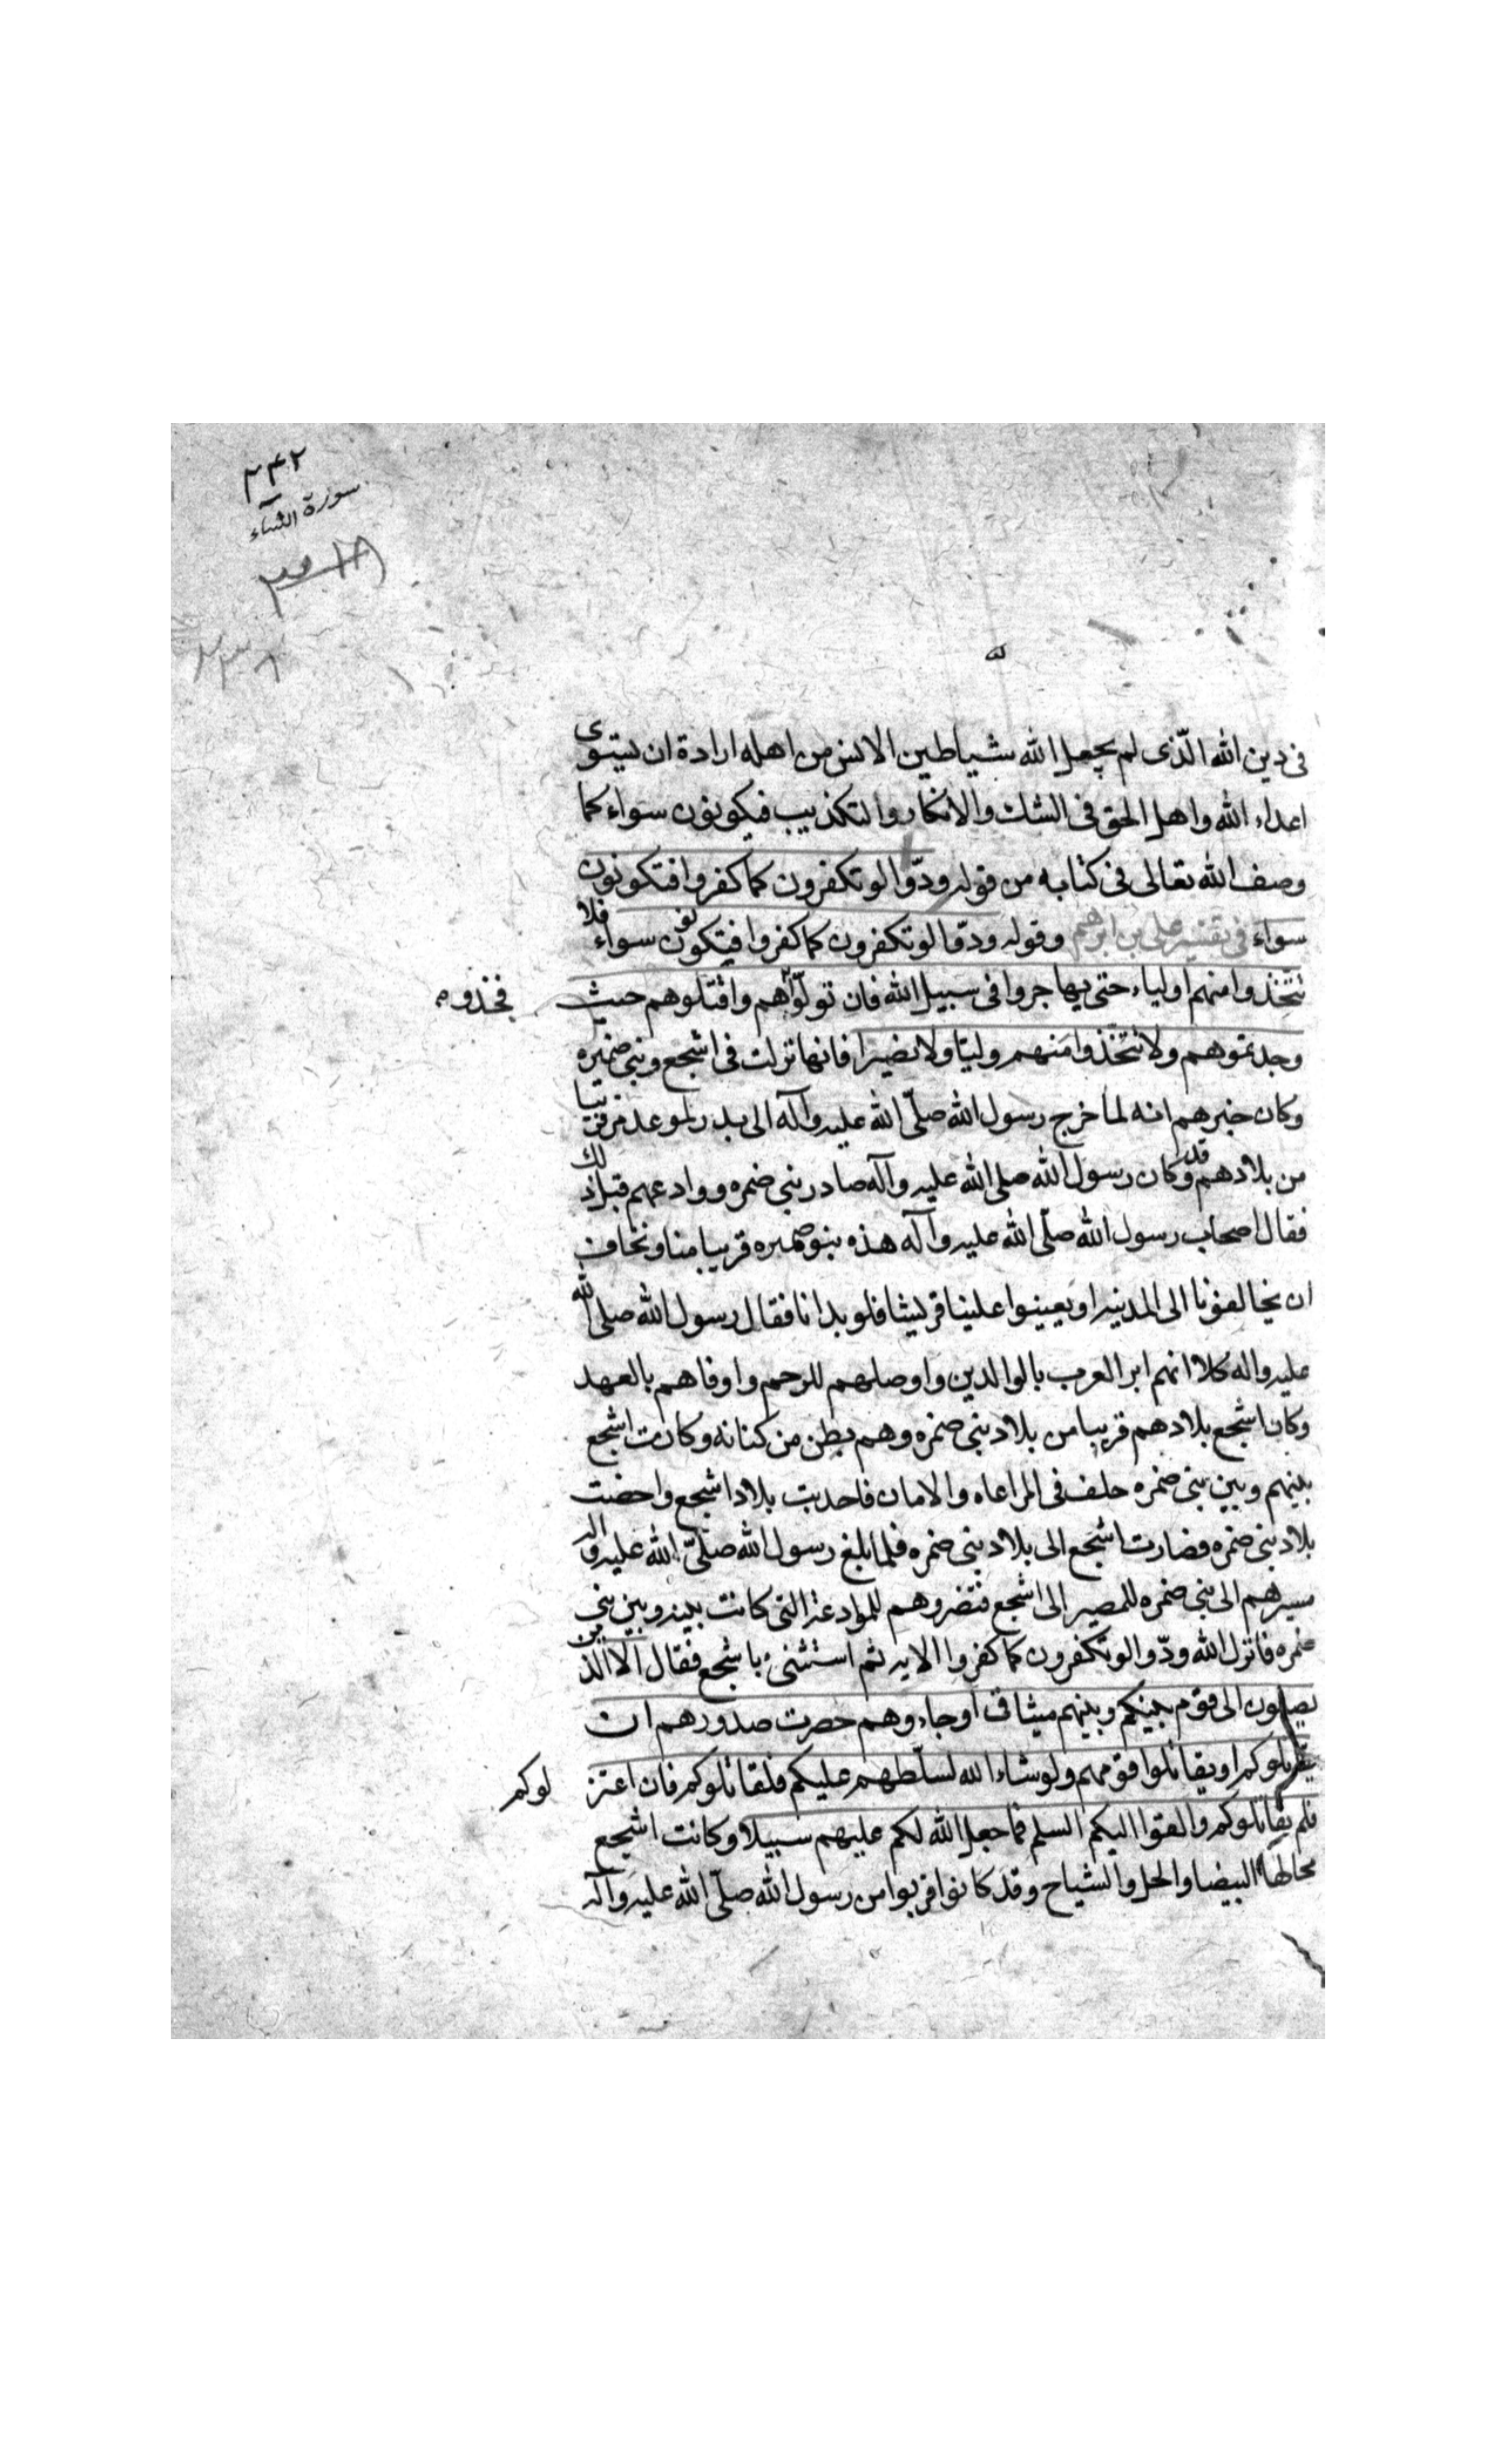 ٢٤٢
سورة النساء
٢٣٨
فى دين الله الّذى لم يجعل الله شياطين الانس من اهله ارادة ان يستوى
اعداء الله واهل الحق فى الشك والانكار والتكذيب فيكونون سواء كما
وصف الله تعالى فى كتابه من قوله ودّوا لو تكفرون كما كفروا فتكونون
سواء فى تفسير على بن ابرهيم وقوله ودوا لو تكفرون كما كفروا فيتكونون سواء فلا
تتّخذوا منهم اولياء حتى يهاجروا فى سبيل الله فان تولّوا هم واقتلوهم حيث فخذوه
وجدتموهم ولا تتّخذوا منهم وليّا ولا نصيرا فانها نزلت فى اشجع وبنى ضمره
وكان خبرهم انه لما خرج رسول الله صلّى الله عليه وآله الى بدر لموعد مر قريبا
من بلادهم وقد كان رسول الله صلى الله عليه وآله صادر بنى ضمره ووادعهم قبل ذلك
فقال اصحاب رسول الله صلّى الله عليه وآله هذه بنو ضمره قريبا منا ونخاف
ان يخالفونا الى المدينه او يعينوا علينا قريشا فلو بدانا فقال رسول الله صلى الله
عليه واله كلا انهم ابر العرب بالوالدين واوصلهم للرحم واوفاهم بالعهد
وكان اشجع بلادهم قريبا من بلاد بنى ضمره وهم بطن من كنانه وكانت اشجع
بينهم وبين بنى ضمره حلف فى المراعاه والامان فاجدبت بلاد اشجع واخصت
بلاد بنى ضمره فصارت اشجع الى بلاد بنى ضمره فلما بلغ رسول الله صلّى الله عليه واله
مسيرهم الى بنى ضمره للمصير الى اشجع فتضروهم للموادعة التى كانت بينه وبين بنى
ضمره فانزل الله ودّوا لو تكفرون كما كفروا الايه ثم استثنى باشجع فقال الا الذين
يصلون الى قوم بينكم وبينهم ميثاق او جاءوهم حصرت صدورهم ان
يقاتلوكم او يقاتلوا قومهم ولو شاء الله لسلّطهم عليكم فلقاتلوكم فان اعتز لوكم
فلم يقاتلوكم والقوا اليكم السلم فما جعل الله لكم عليهم سبيلا وكانت اشجع
محالها البيضا والحل والشياح وقد كانوا قربوا من رسول الله صلّى الله عليه وآله